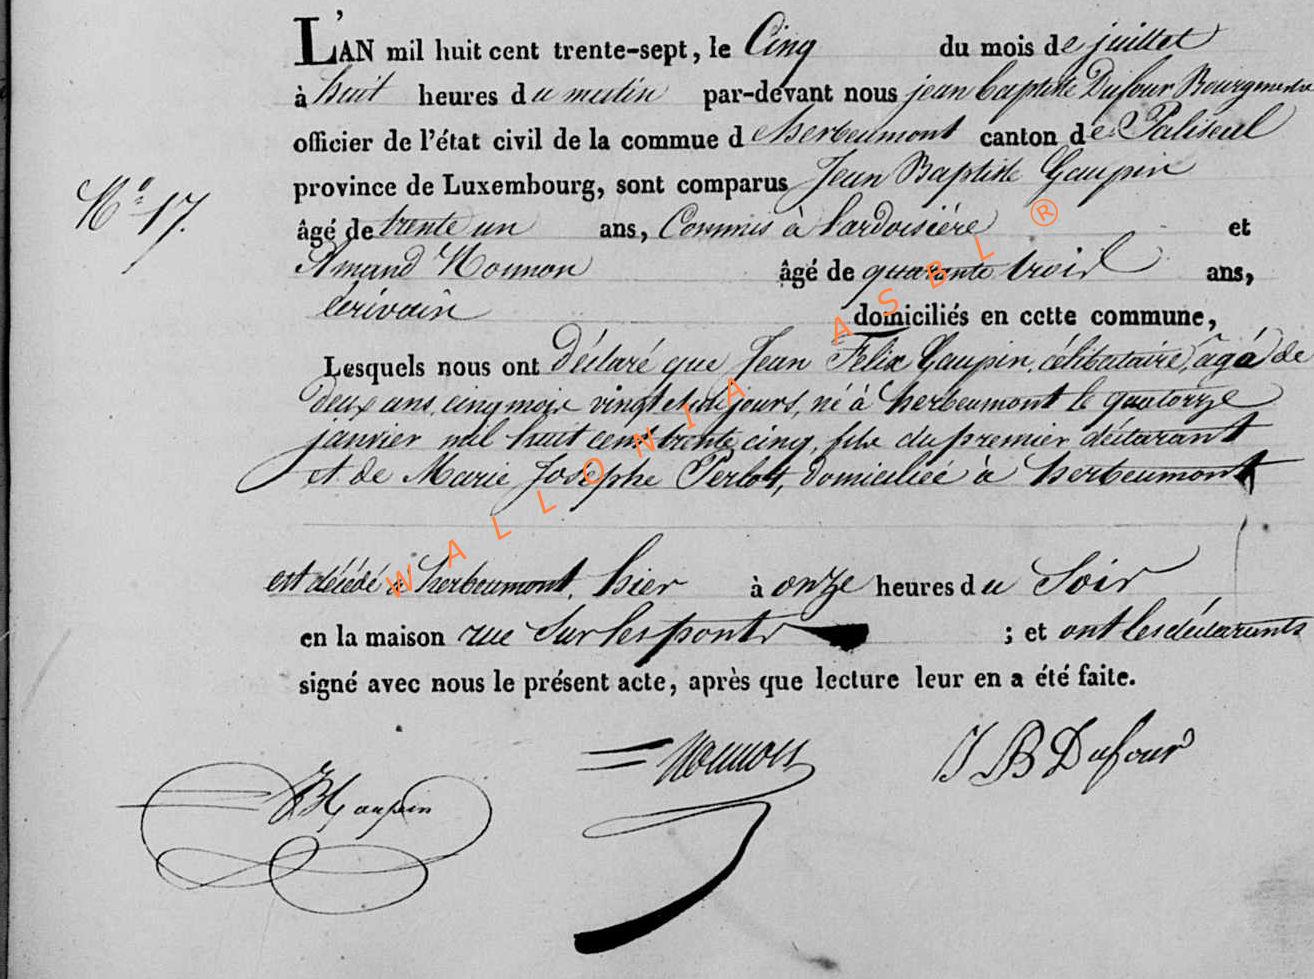 L'AN mil huit cent trente-sept, le Cinq du mois de juillet
à huit heures du matin par-devant nous jean baptiste Dufour Bourgmestre
officier de l'état civil de la commue d'herbeumont canton de Paliseul
province de Luxembourg, sont comparus Jean Baptiste Gaupin
N° 17.
âgé de trente un ans, Commis à l'ardoisière et
Amand Nounon âgé de quarante trois ans,
écrivain domiciliés en cette commune,
Lesquels nous ont déclaré que Jean Felix Gaupin, célibataire, âgé de
deux ans, cinq mois vingt jours, né à herbeumont le quatorze
janvier mil huit cent trente cinq, fils du premier déclarant
et de Marie Josephe Perlot, domiciliée à herbeumont
est décédé à herbeumont, hier à onze heures du Soir
en la maison rue Sur les ponts ; et ont les déclarants
signé avec nous le présent acte, après que lecture leur en a été faite.
JB Gaupin Nounon J B Dufour
WALLONIA ASBL ®